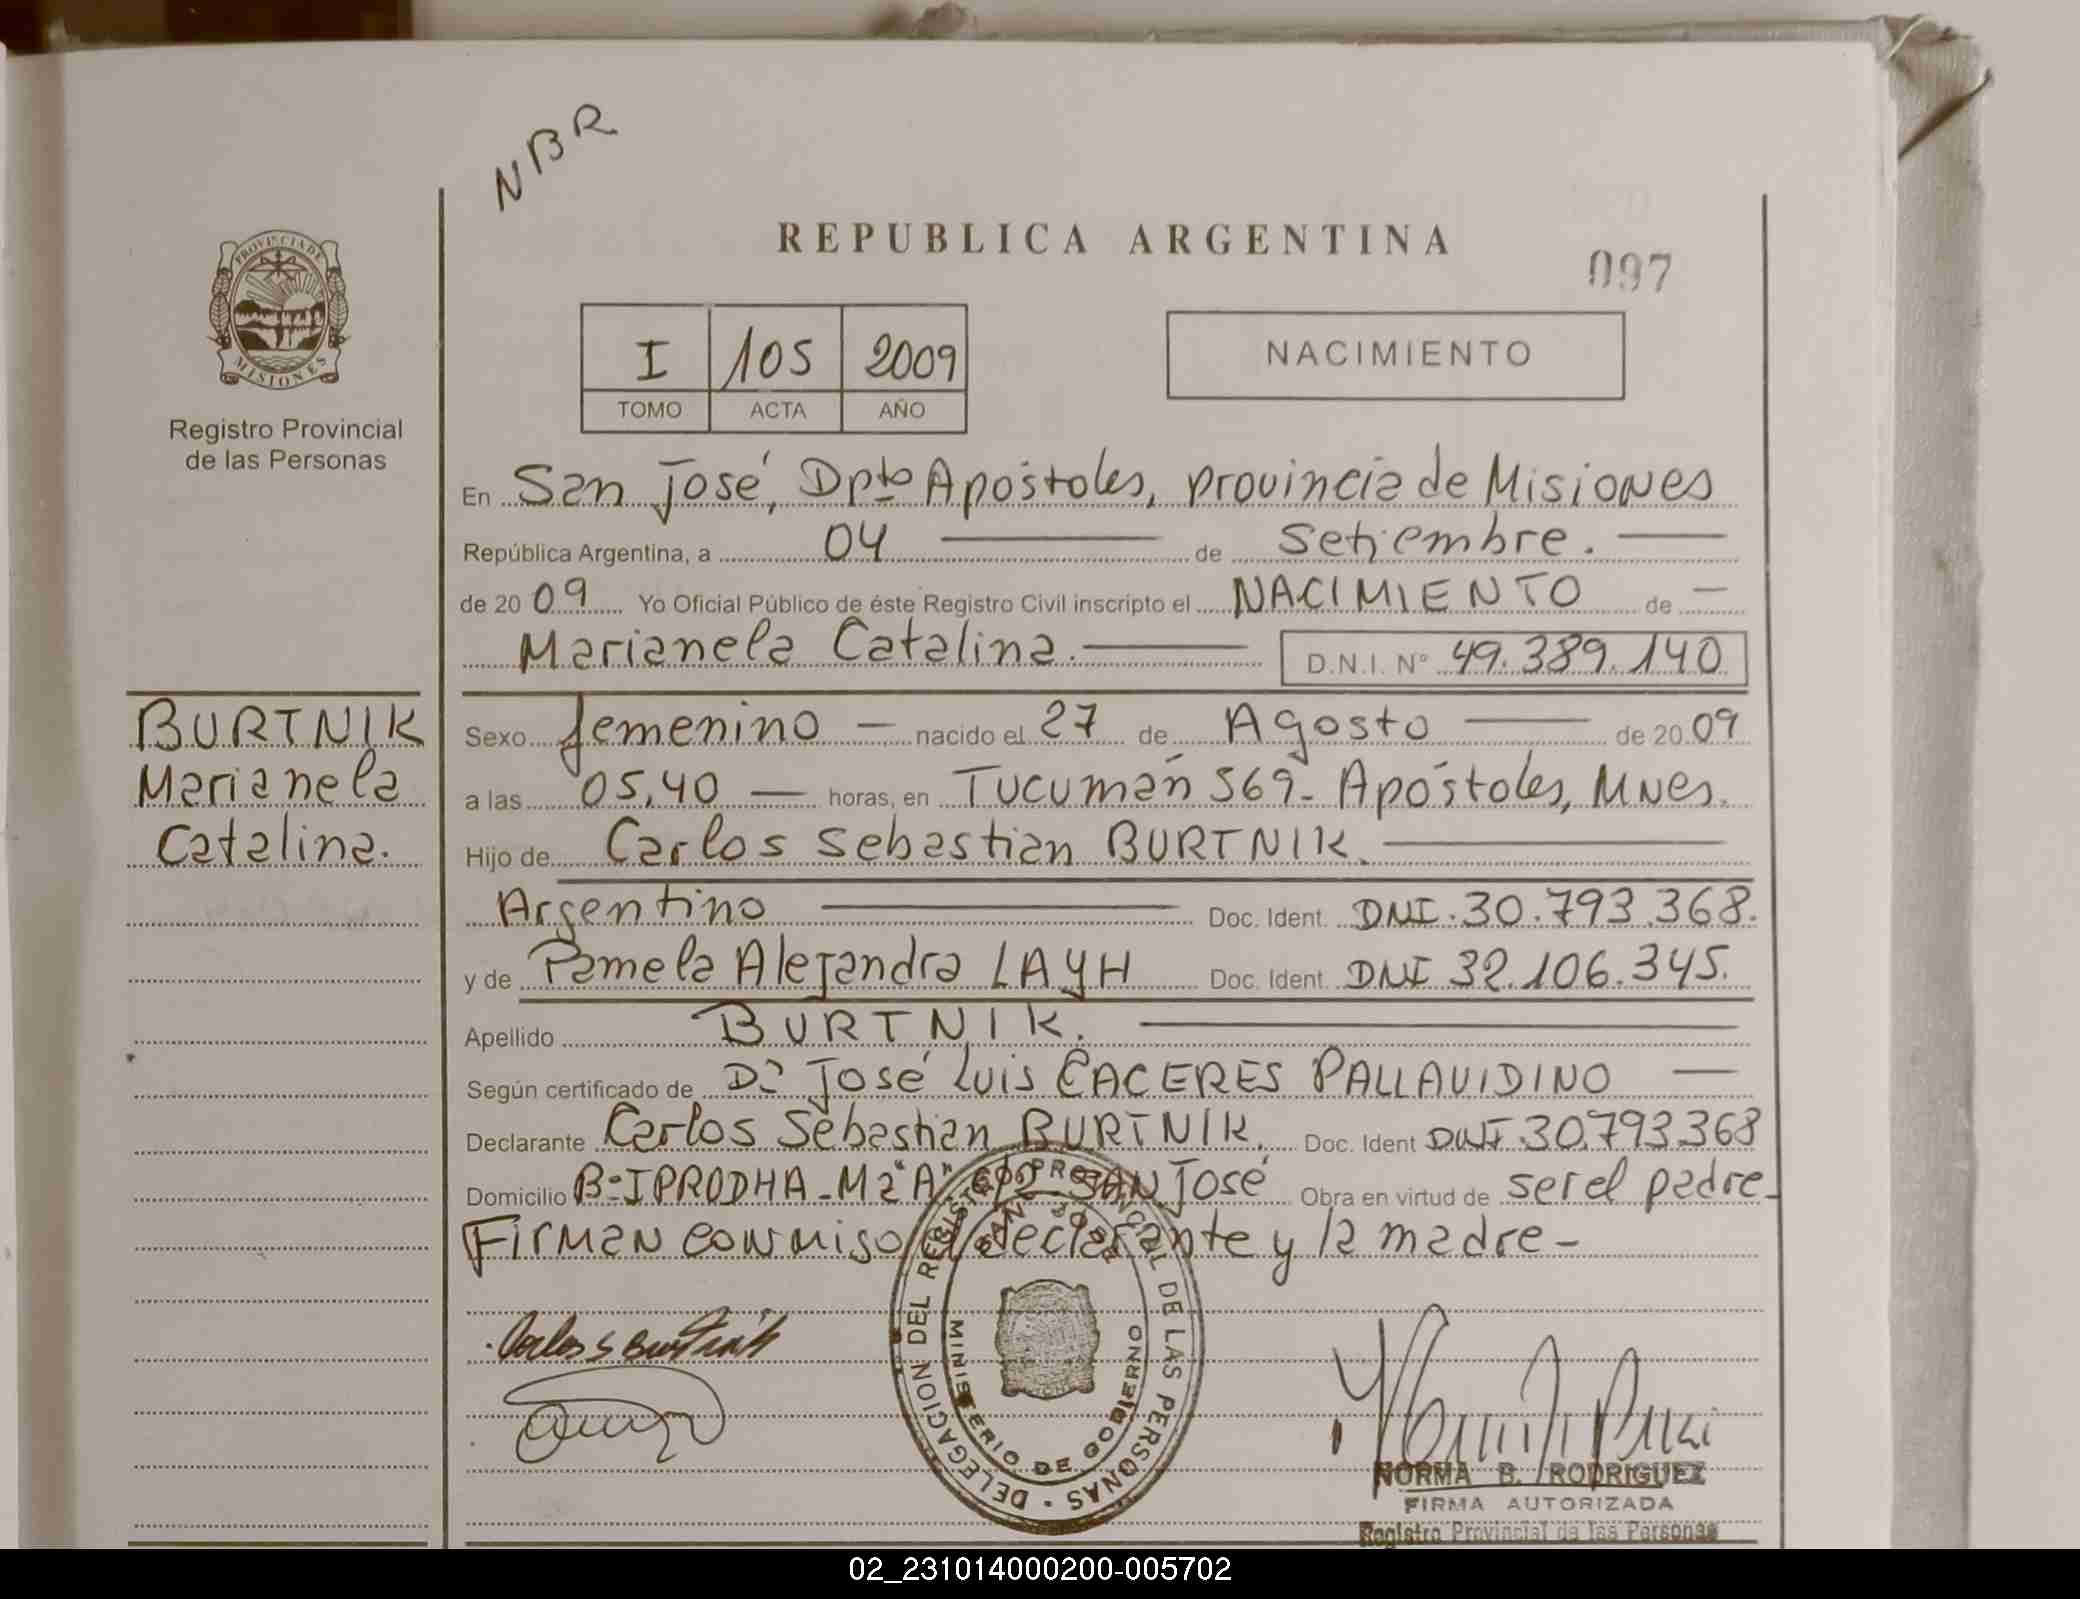 NBR
REPUBLICA ARGENTINA
097
PROVINCIA DE
MISIONES
Registro Provincial
de las Personas
I 105 2009
TOMO ACTA AÑO
NACIMIENTO
En San José, Dpto Apóstoles, provincia de Misiones
República Argentina, a 04 de Setiembre.
de 20 09 Yo Oficial Público de éste Registro Civil inscripto el NACIMIENTO de
Marianela Catalina. D.N.I. N° 49.389.140
BURTNIK
Marianela
Catalina.
Sexo femenino nacido el 27 de Agosto de 20 09
a las 05,40 horas, en Tucumán 569- Apóstoles, Mnes.
Hijo de Carlos Sebastian BURTNIK.
Argentino Doc. Ident. DNI.30.793.368.
y de Pamela Alejandra LAYH Doc. Ident. DNI 32.106.345.
Apellido BURTNIK.
Según certificado de Dr José Luis CACERES PALLAVIDINO
Declarante Carlos Sebastian BURTNIK. Doc. Ident DNI.30.793.368
Domicilio B° IPRODHA-Mz"A" SAN José Obra en virtud de ser el padre-
Firman conmigo el declarante y la madre-
Carlos S Burtnik
DELEGACION DEL REGISTRO PROVINCIAL DE LAS PERSONAS
SAN JOSE
MINISTERIO DE GOBIERNO
NORMA B. RODRIGUEZ
FIRMA AUTORIZADA
Registro Provincial de las Personas
02_231014000200-005702